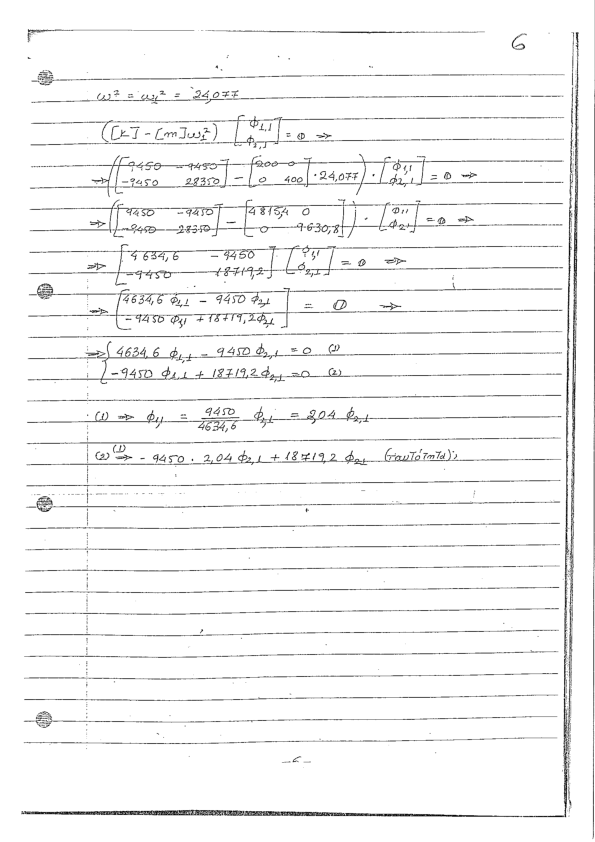 6
ω² = ω₁² = 24,077
([K] - [m]ω₁²) [φ1,1 φ2,1] = 0 ⇒
⇒ ([9450 -9450 -9450 28350] - [200 0 0 400] · 24,077) · [φ1,1 φ2,1] = 0 ⇒
⇒ ([9450 -9450 -9450 28350] - [4815,4 0 0 9630,8]) · [φ11 φ21] = 0 ⇒
⇒ [4634,6 -9450 -9450 18719,2] · [φ1,1 φ2,1] = 0 ⇒
⇒ [4634,6 φ1,1 - 9450 φ2,1 -9450 φ1,1 + 18719,2 φ2,1] = 0 ⇒
⇒ { 4634,6 φ1,1 - 9450 φ2,1 = 0 (1)
-9450 φ1,1 + 18719,2 φ2,1 = 0 (2)
(1) ⇒ φ1,1 = 9450/4634,6 φ2,1 = 2,04 φ2,1
(2) (1)⇒ -9450 · 2,04 φ2,1 + 18719,2 φ2,1 (ταυτότητα);